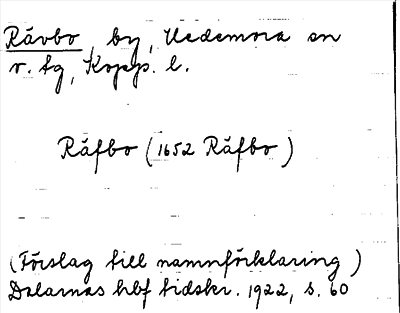 Rävbo, by, Hedemora sn
v. tg, Kopp. l.
Räfbo (1652 Räfbo)
(Förslag till namnförklaring)
Dalarnas hbf tidskr. 1922, s. 60